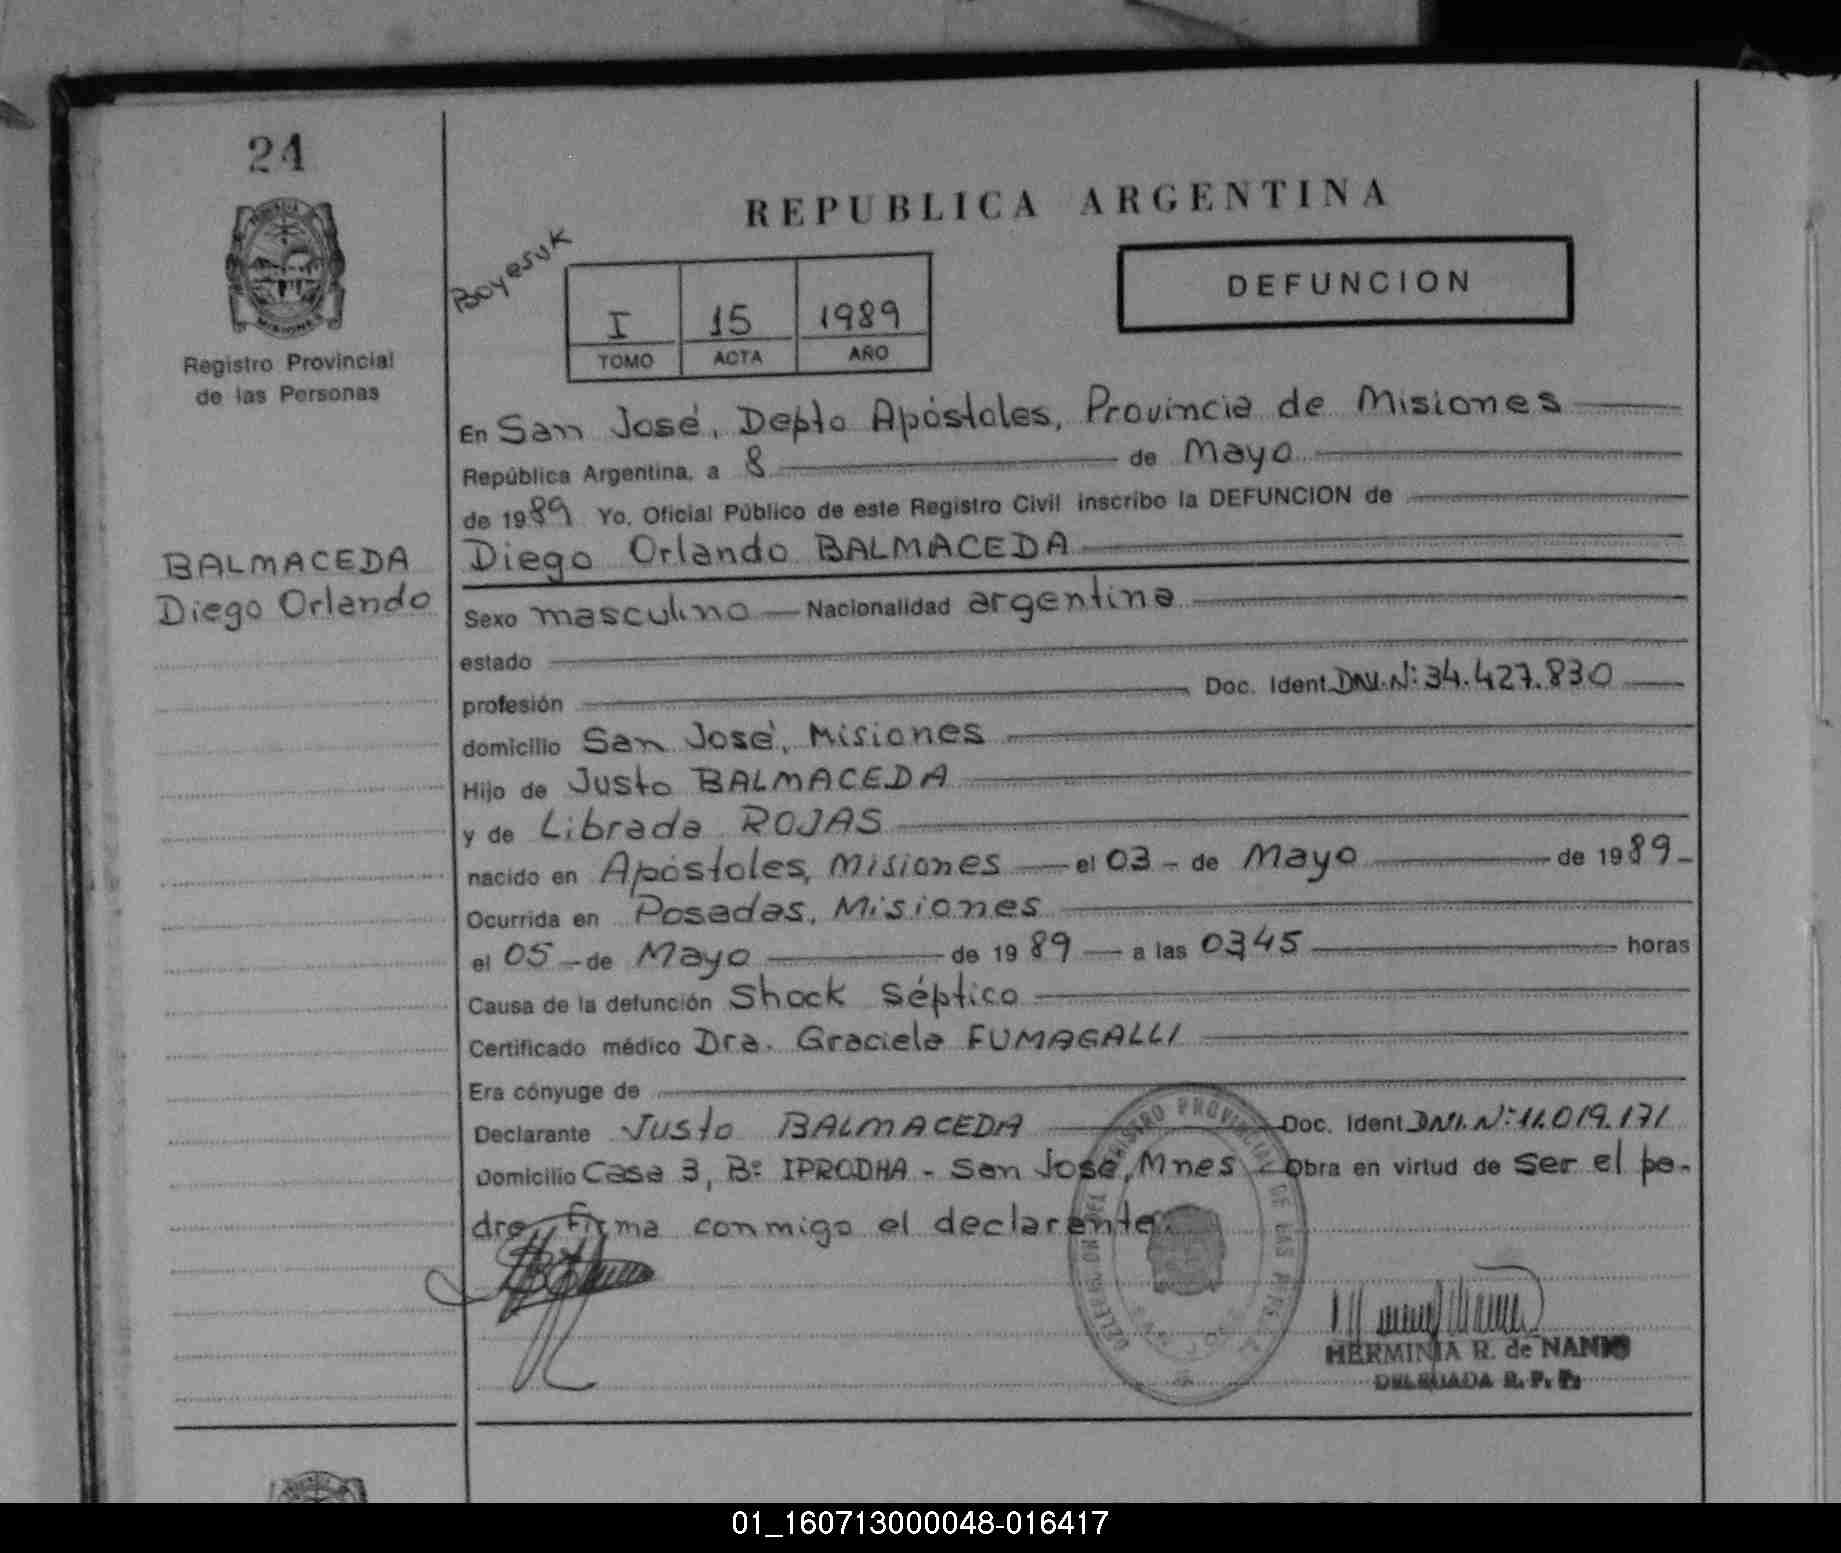 24
MISIONES
Registro Provincial
de las Personas
BALMACEDA
Diego Orlando
REPUBLICA ARGENTINA
Boyesuk
I 15 1989
TOMO ACTA AÑO
DEFUNCION
En San José, Depto Apóstoles, Provincia de Misiones
República Argentina, a 8 de Mayo
de 1989 Yo, Oficial Público de este Registro Civil inscribo la DEFUNCION de
Diego Orlando BALMACEDA
Sexo masculino Nacionalidad argentina
estado
profesión Doc. Ident. DNI. Nº: 34.427.830
domicilio San José, Misiones
Hijo de Justo BALMACEDA
y de Librada ROJAS
nacido en Apóstoles, Misiones el 03 - de Mayo de 1989 -
Ocurrida en Posadas, Misiones
el 05 - de Mayo de 1989 a las 03,45 horas
Causa de la defunción Shock Séptico
Certificado médico Dra. Graciela FUMAGALLI
Era cónyuge de
Declarante Justo BALMACEDA Doc. Ident DNI. Nº: 11.019.171
Domicilio Casa 3, Bº IPRODHA - San José, Mnes - Obra en virtud de ser el pa-
dre, firma conmigo el declarante.
REGISTRO PROVINCIAL DE LAS
HERMINIA R. de
DELEGADA R. P. P.
01_160713000048-016417